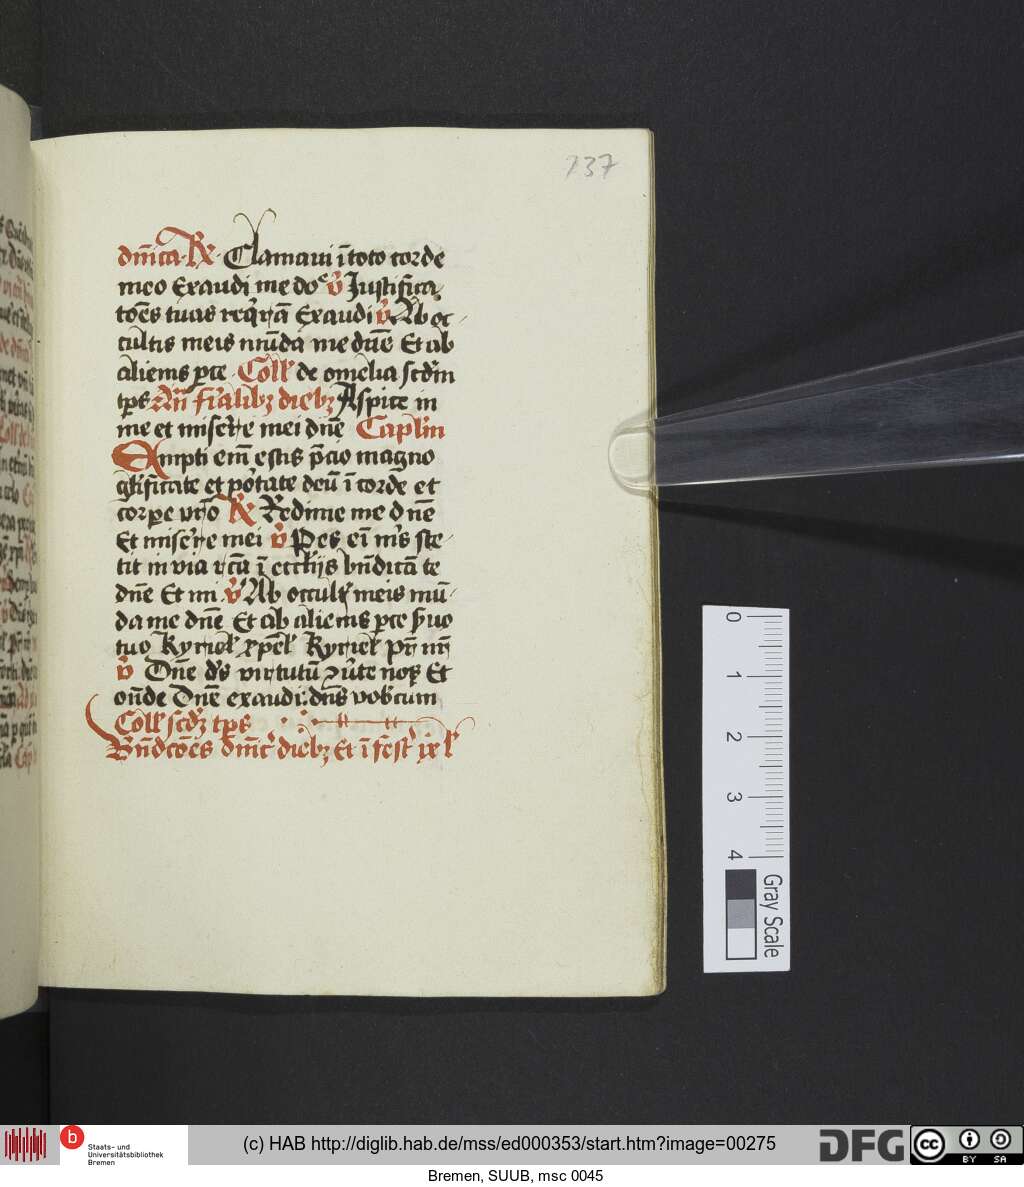 137
dn̄ica R̷ Clamaui ī toto corde
meo Exaudi me do͏ͨ v̄ Justifica
tōēs tuas req̄rā Exaudi v̄ Ab oc
cultis meis mūda me dn̄e Et ab
alienis p̱ce Coll͛ de omelia scd̄m
tp̱s An̄ ferialibꝫ diebꝫ Aspice in
me et miser̄e mei dn̄e Caplm̄
Empti em̄ estis p̄cio magno
gl̄ificate et portate deū ī corde et
corꝑe vr̄o R̷ Redime me dn̄e
Et miser̄e mei v̄ Pes em̄ ms̄ ste
tit in via rc̄a ī eccl̄ijs bn̄dicā te
dn̄e Et mi v̄ Ab occult͛ meis mū
da me dn̄e Et ab alienis p̱ce s̄uo
tuo Kyriel͛ xp̄el͛ Kyriel͛ pr̄ nr̄
v̄ Dn̄e ds̄ virtutū 9ūte nos Et
on̄de Dn̄e exaudi: dn̄s vobcum
Coll͛ scd̄ꝫ tp̱s
Bn̄dcōēs dn̄ic͛ diebꝫ Et ī fest͛ ix l͛
0
1
2
3
4
Gray Scale
b
Staats- und
Universitätsbibliothek
Bremen
(c) HAB http://diglib.hab.de/mss/ed000353/start.htm?image=00275
DFG
cc
BY SA
Bremen, SUUB, msc 0045